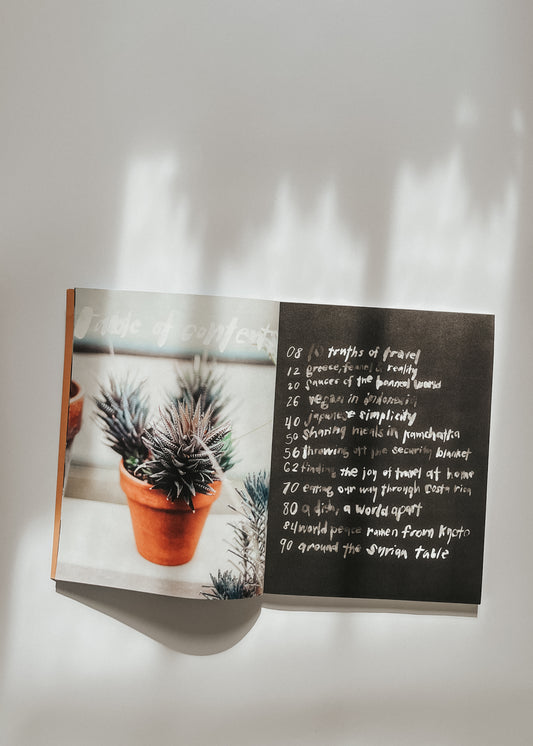 table of contents
08 10 truths of travel
12 greece, travel & reality
20 sauces of the banned world
26 vegan in indonesia
40 japanese simplicity
50 sharing meals in kamchatka
56 throwing off the security blanket
62 finding the joy of travel at home
70 eating our way through costa rica
80 a dish, a world apart
84 world peace ramen from kyoto
90 around the syrian table